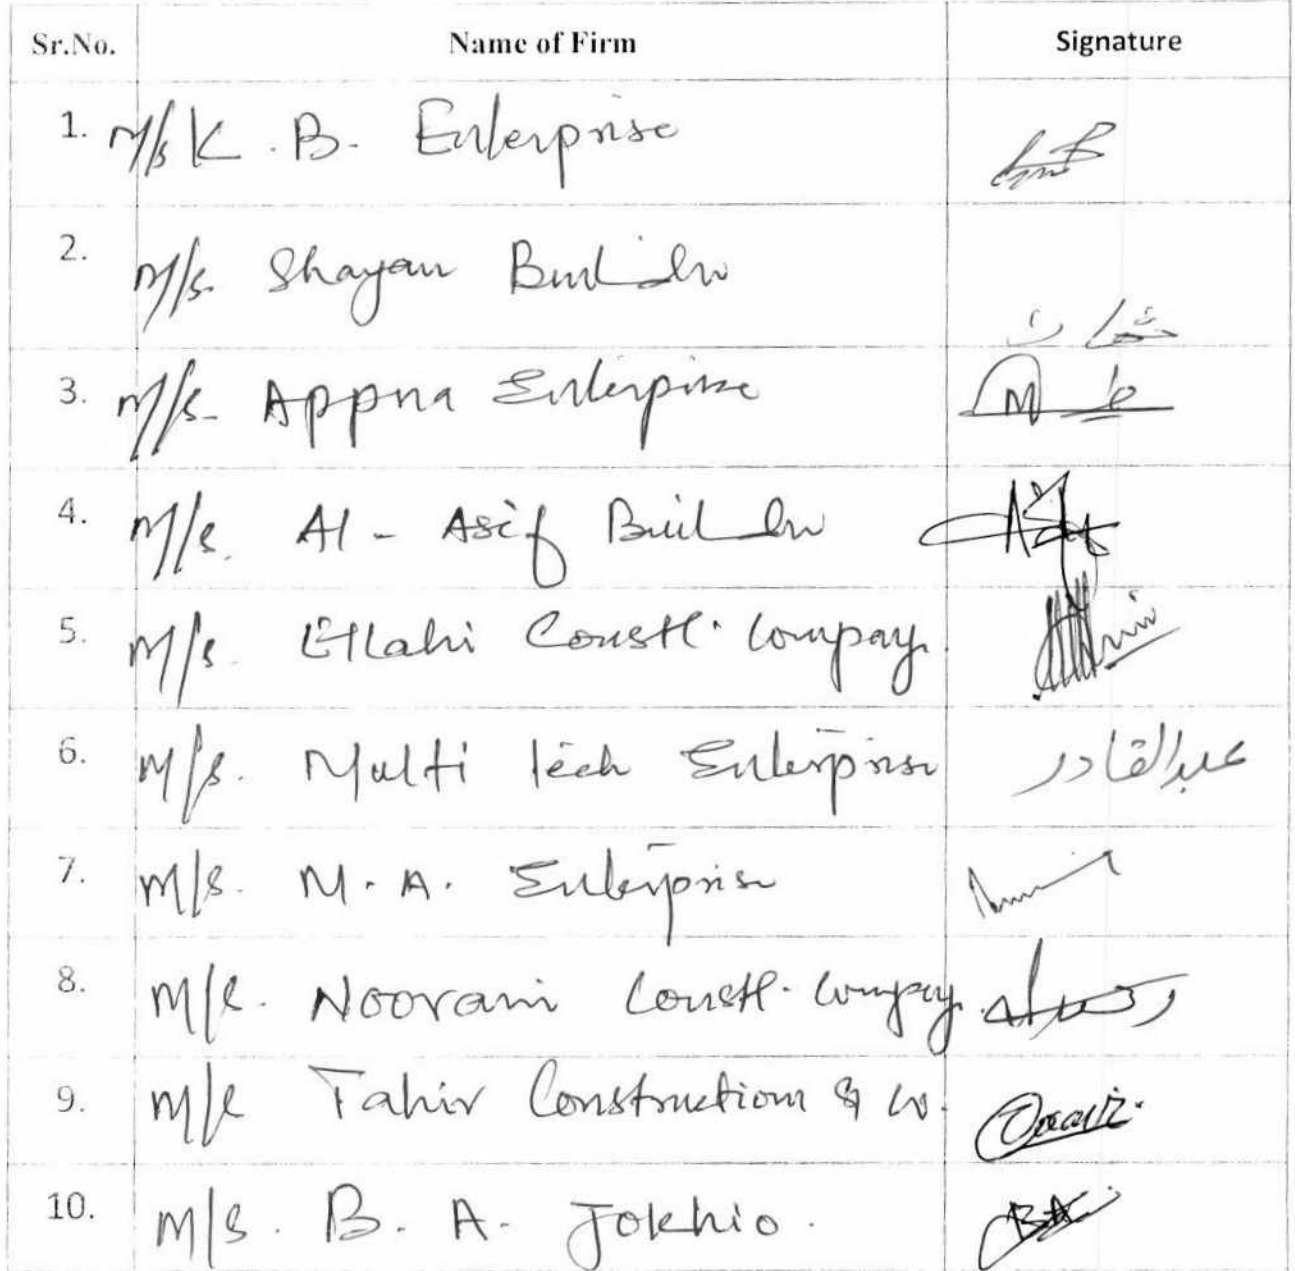 Sr.No. Name of Firm Signature
1. M/s K. B. Enterprise
2. M/s. Shayan Builder
3. M/s. Appna Enterprise
4. M/s. Al - Asif Builder
5. M/s. Ellahi Constt. Company
6. M/s. Multi Tech Enterprise عبدالقادر
7. M/s. M. A. Enterprise
8. M/s. Noorani Constt. Company
9. M/s Tahir Construction & Co.
10. M/s. B. A. Jokhio.